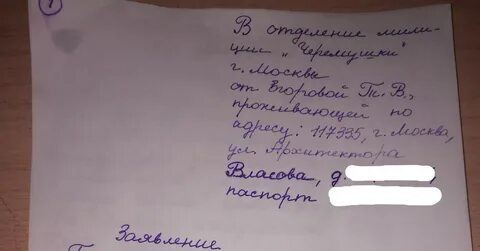 1
В отделение мили-
ции „Черемушки"
г. Москвы
от Егоровой Т. В.,
проживающей по
адресу: 117335, г. Москва,
ул. Архитектора
Власова, д.
паспорт
Заявление